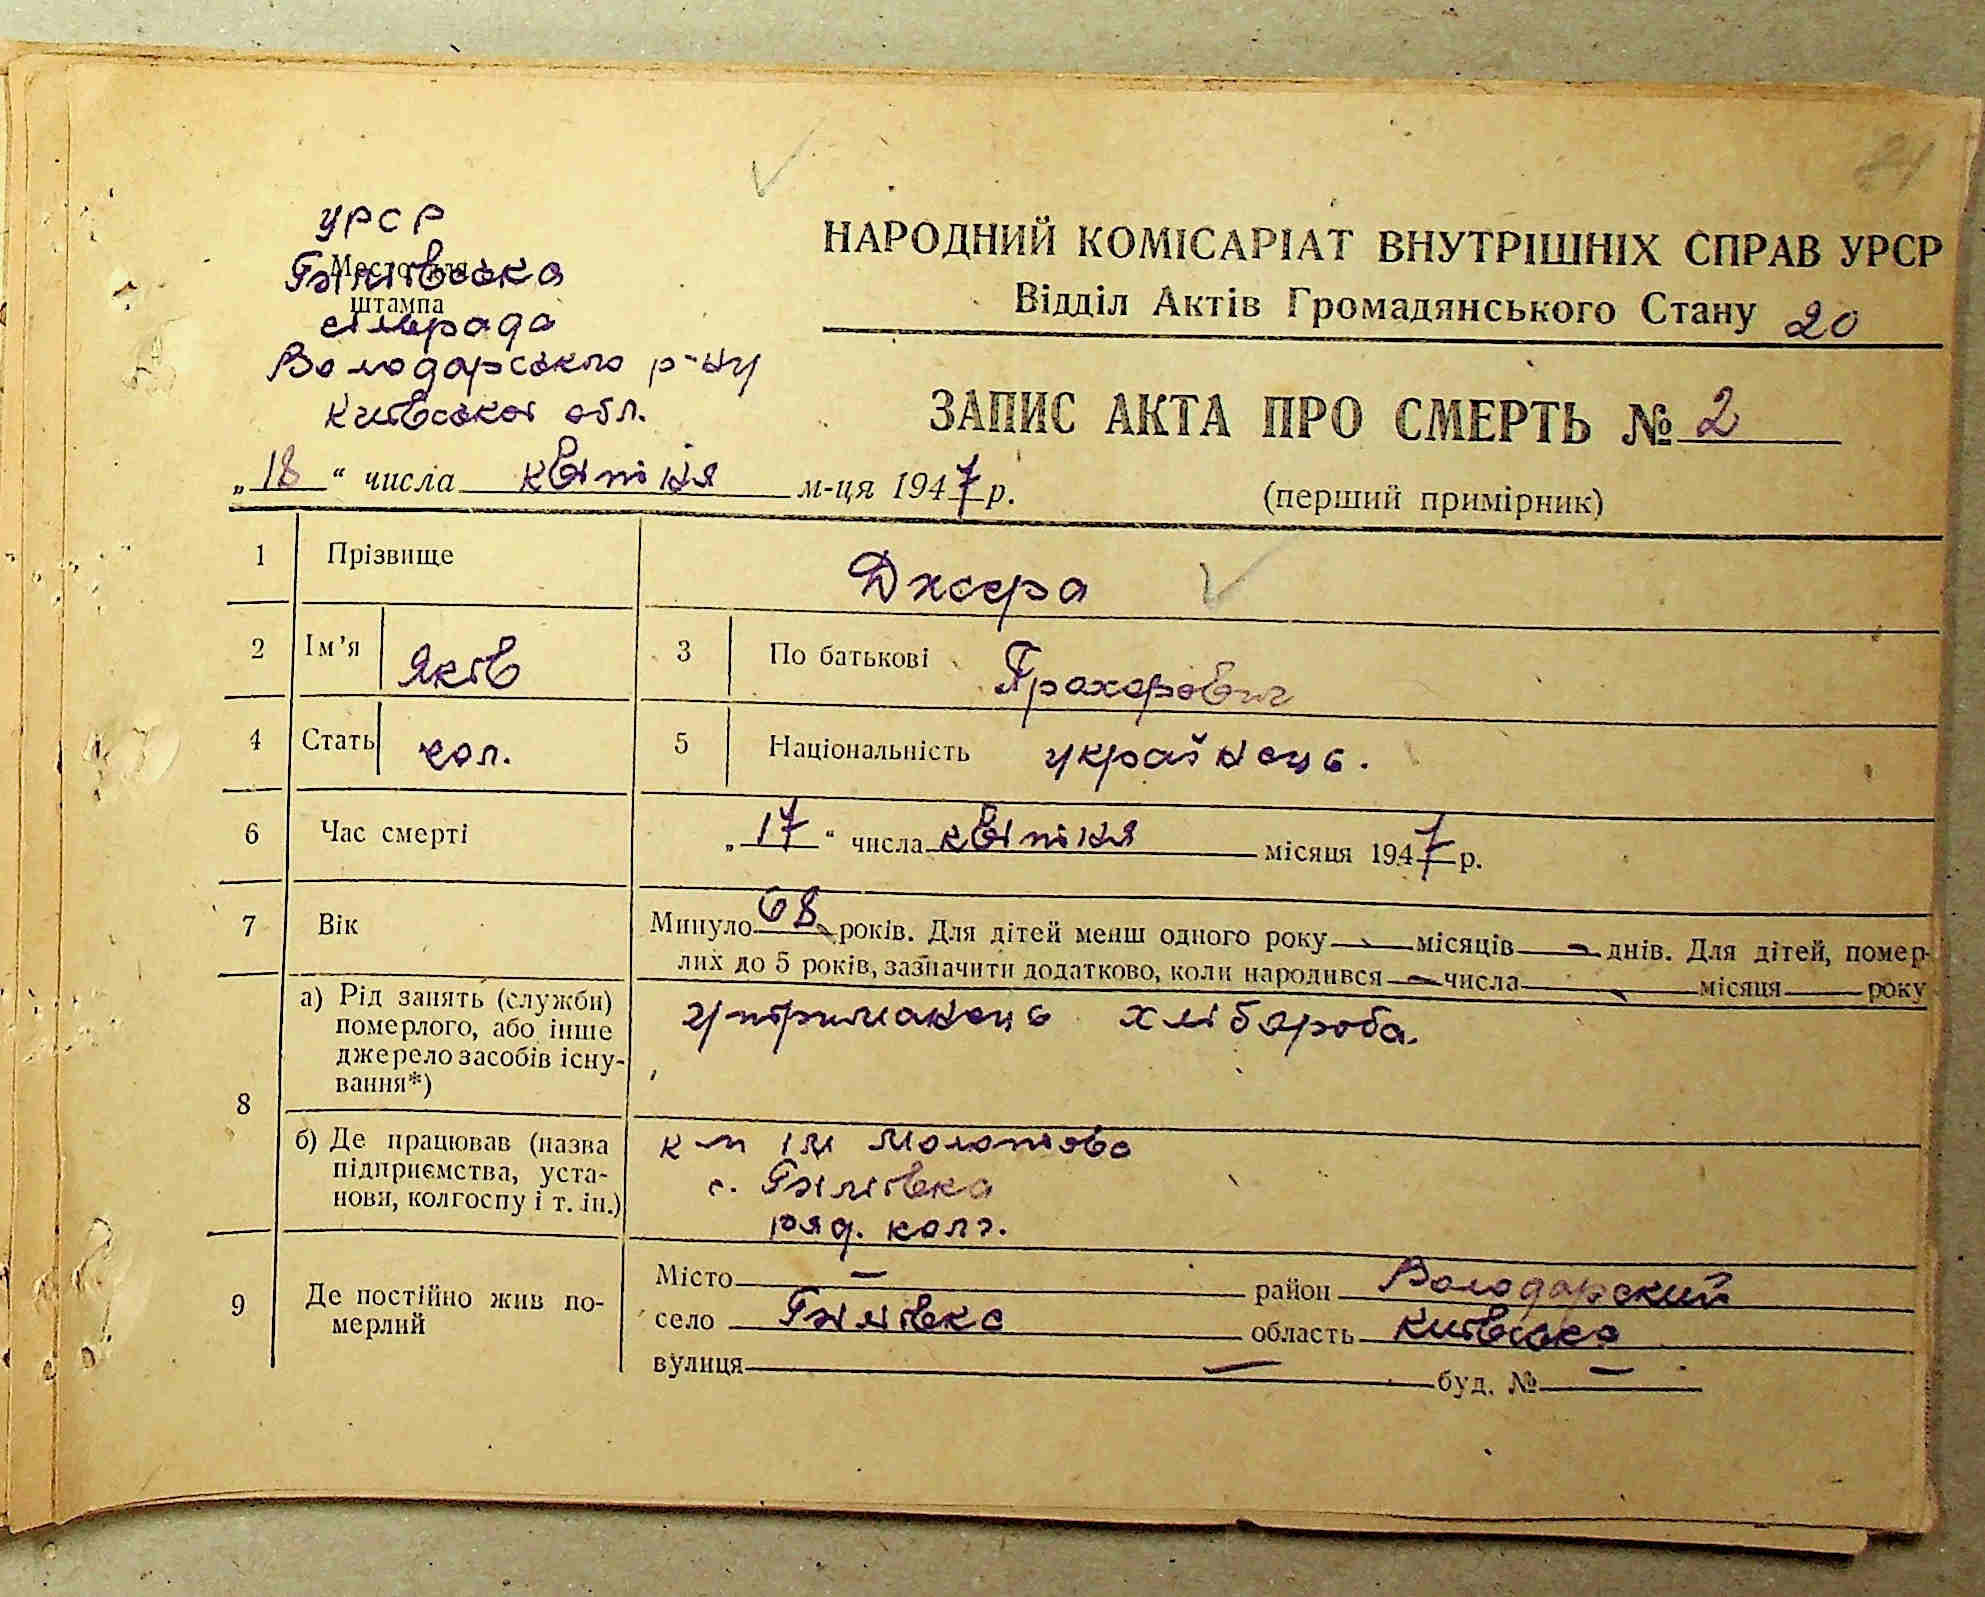 21
УРСР
Место для
штампа
сільрада
Володарського р-ну
Київської обл.
НАРОДНИЙ КОМІСАРІАТ ВНУТРІШНІХ СПРАВ УРСР
Відділ Актів Громадянського Стану 20
ЗАПИС АКТА ПРО СМЕРТЬ № 2
„18“ числа квітня м-ця 1947 р. (перший примірник)
1 Прізвище Джера
2 Ім'я Яків 3 По батькові Прохорович
4 Стать чол. 5 Національність українець.
6 Час смерті „17“ числа квітня місяця 1947 р.
7 Вік Минуло 68 років. Для дітей менш одного року — місяців — днів. Для дітей, помер-
лих до 5 років, зазначити додатково, коли народився — числа — місяця — року
8 а) Рід занять (служби)
померлого, або інше
джерело засобів існу-
вання*)
утриманець хлібороба.
б) Де працював (назва
підприємства, уста-
нови, колгоспу і т. ін.)
к-п ім Молотова
с. Гнилівка
ряд. колг.
9 Де постійно жив по-
мерлий
Місто — район Володарский
село область Київська
вулиця — буд. № —